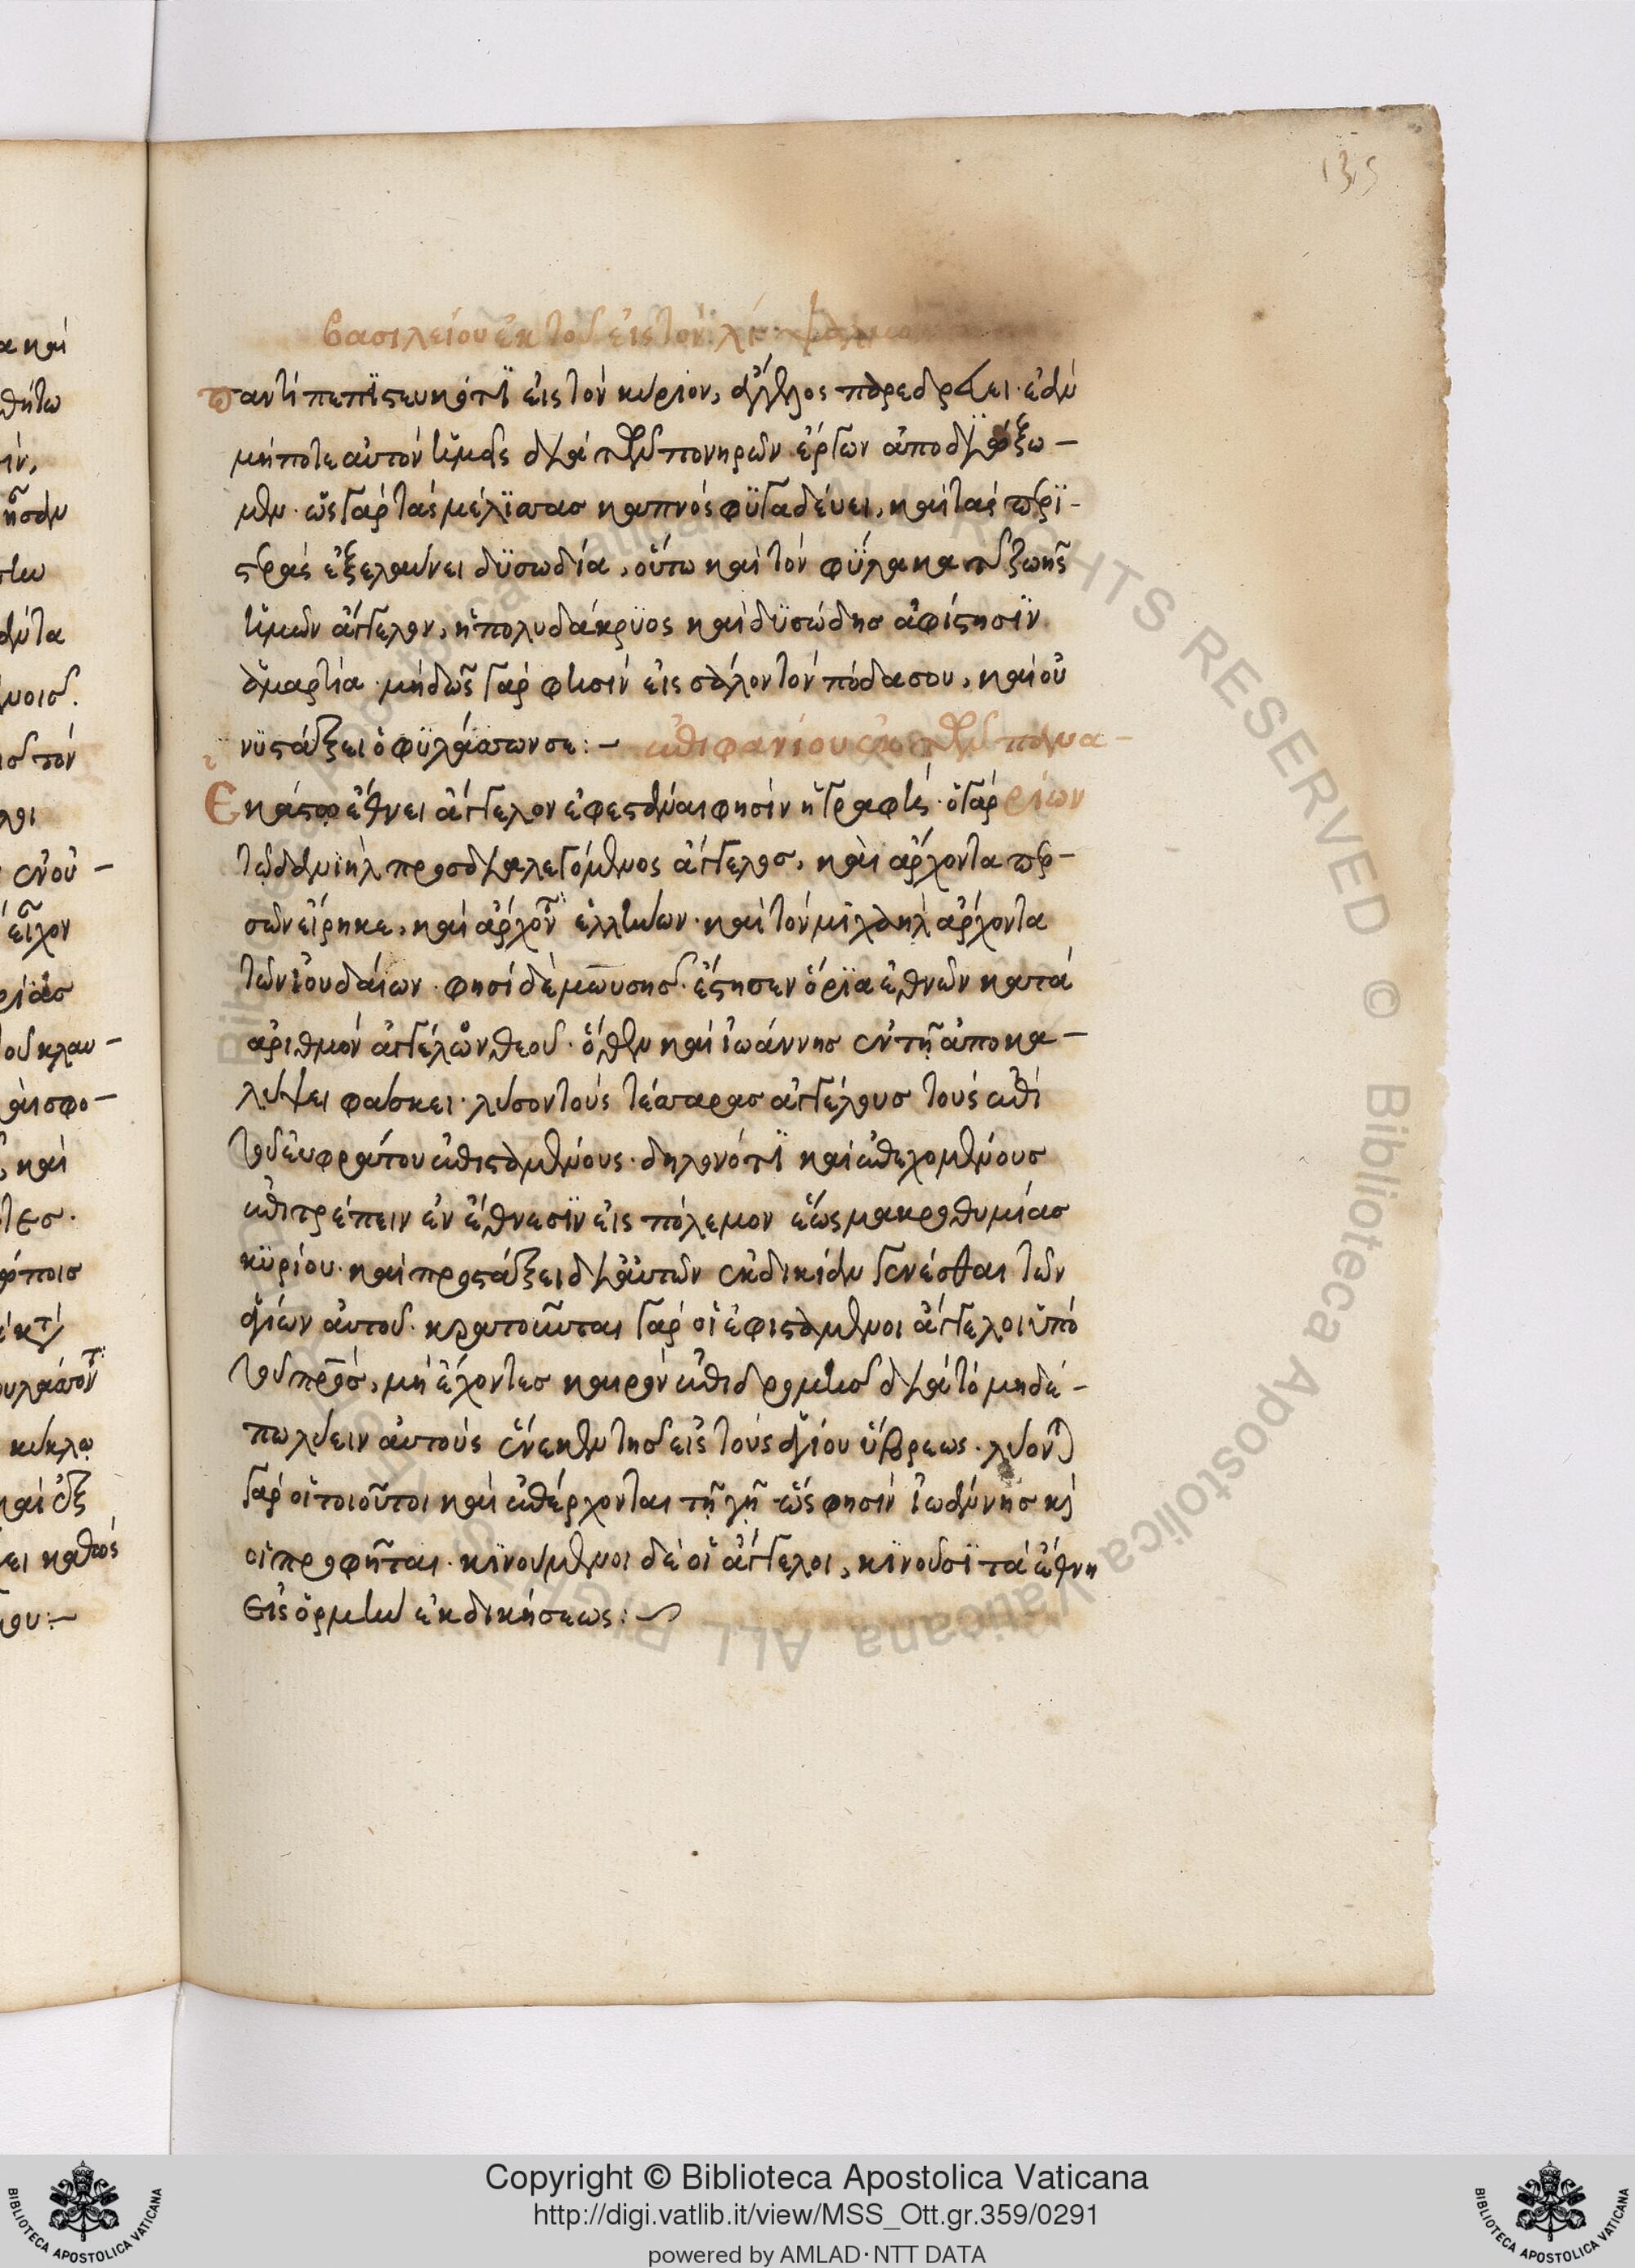 135
βασιλείου ἐκ τοῦ εἰς τὸν λγ ψαλμὸν
παντὶ πεπϊστευκότϊ εἰς τὸν κύριον, ἄγγελος παρεδρεύει· ἐὰν
μήποτε αὐτὸν ἡμεῖς διὰ τῶν πονηρῶν ἔργων ἀποδιώξω –
μεν· ὡς γὰρ τὰς μελίσσας καπνὸς φϋγαδεύει, καὶ τὰς περϊ –
στερὰς ἐξελαύνει δϋσωδία, οὕτω καὶ τὸν φύλακα τῆς ζωῆς
ἡμῶν ἄγγελον, ἡ πολυδάκρϋος καὶ δϋσώδης ἀφίστησϊν
ἁμαρτία· μὴ δῶς γάρ φησιν εἰς σάλον τὸν πόδα σου, καὶ οὐ
νϋστάξει ὁ φϋλάσσων σε :– ἐπιφανίου ἐκ τῶν πανα –
Ἑκάστῳ ἔθνει ἄγγελον ἐφεστάναι φησὶν ἡ γραφή· ὁ γὰρ ρίων
τῷ δανιὴλ προσδιαλεγόμενος ἄγγελος, καὶ ἄρχοντα περ –
σῶν εἴρηκε, καὶ ἄρχοντα ἑλλήνων· καὶ τὸν μιχαὴλ ἄρχοντα
τῶν ἰουδαίων· φησὶ δὲ μωυσῆς· ἔστησεν ὅρϊα ἐθνῶν κατὰ
ἀριθμὸν ἀγγέλων θεοῦ· ὅθεν καὶ ἰωάννης ἐν τῇ ἀποκα –
λύψει φάσκει· λῦσον τοὺς τέσσαρας ἀγγέλους τοὺς ἐπὶ
τοῦ εὐφράτου ἐπισταμένους· δηλονότϊ καὶ ἐπεχομένους
ἐπιτρέπειν ἐν ἔθνεσϊν εἰς πόλεμον ἕως μακροθυμίας
κϋρίου· καὶ προστάξει δι' αὐτῶν ἐκδικίαν γενέσθαι τῶν
ἁγίων αὐτοῦ· κρατοῦνται γὰρ οἱ ἐφιστάμενοι ἄγγελοι ὑπὸ
τοῦ πνς, μὴ ἔχοντες καιρὸν ἐπιδρομῆς διὰ τὸ μηδέ –
πω λύειν αὐτοὺς ἕνεκεν τῆς εἰς τοὺς ἁγίου ὕβρεως· λύονται
γὰρ οἱ τοιοῦτοι καὶ ἐπέρχονται τῇ γῇ ὥς φησιν ἰωάννης κὶ
οἱ προφῆται· κϊνούμενοι δὲ οἱ ἄγγελοι, κϊνοῦσϊ τὰ ἔθνη
εἰς ὁρμὴν ἐκδικήσεως :~
Copyright © Biblioteca Apostolica Vaticana
http://digi.vatlib.it/view/MSS_Ott.gr.359/0291
powered by AMLAD·NTT DATA